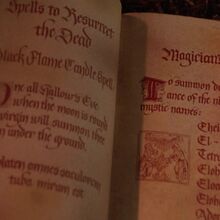 Spells to Resurrect
the Dead
Black Flame Candle Spell
One all Hallour's Eve
when the moon is round
virgin will summon thee
from under the ground.
omnes saeculorum
tuba mirum est
Magician
To summon
ance of the
mystic names:
El -
Eloh